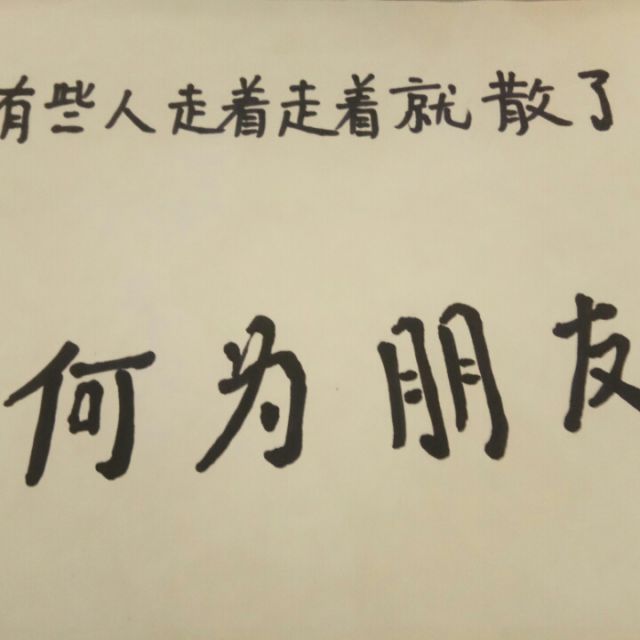 有些人走着走着就散了
何为朋友